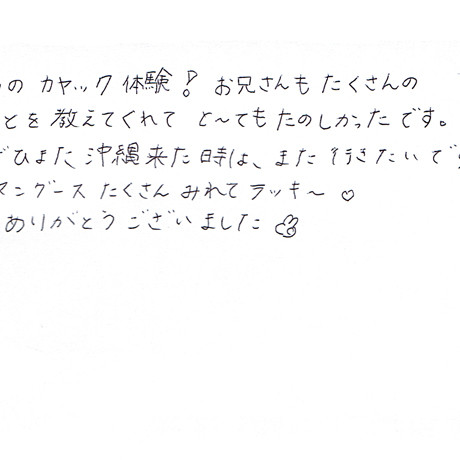 のカヤック体験! お兄さんもたくさんの
とを教えてくれてと〜てもたのしかったです。
ひまた沖縄来た時は、また行きたいで
マングースたくさんみれてラッキ〜♡
ありがとうございました